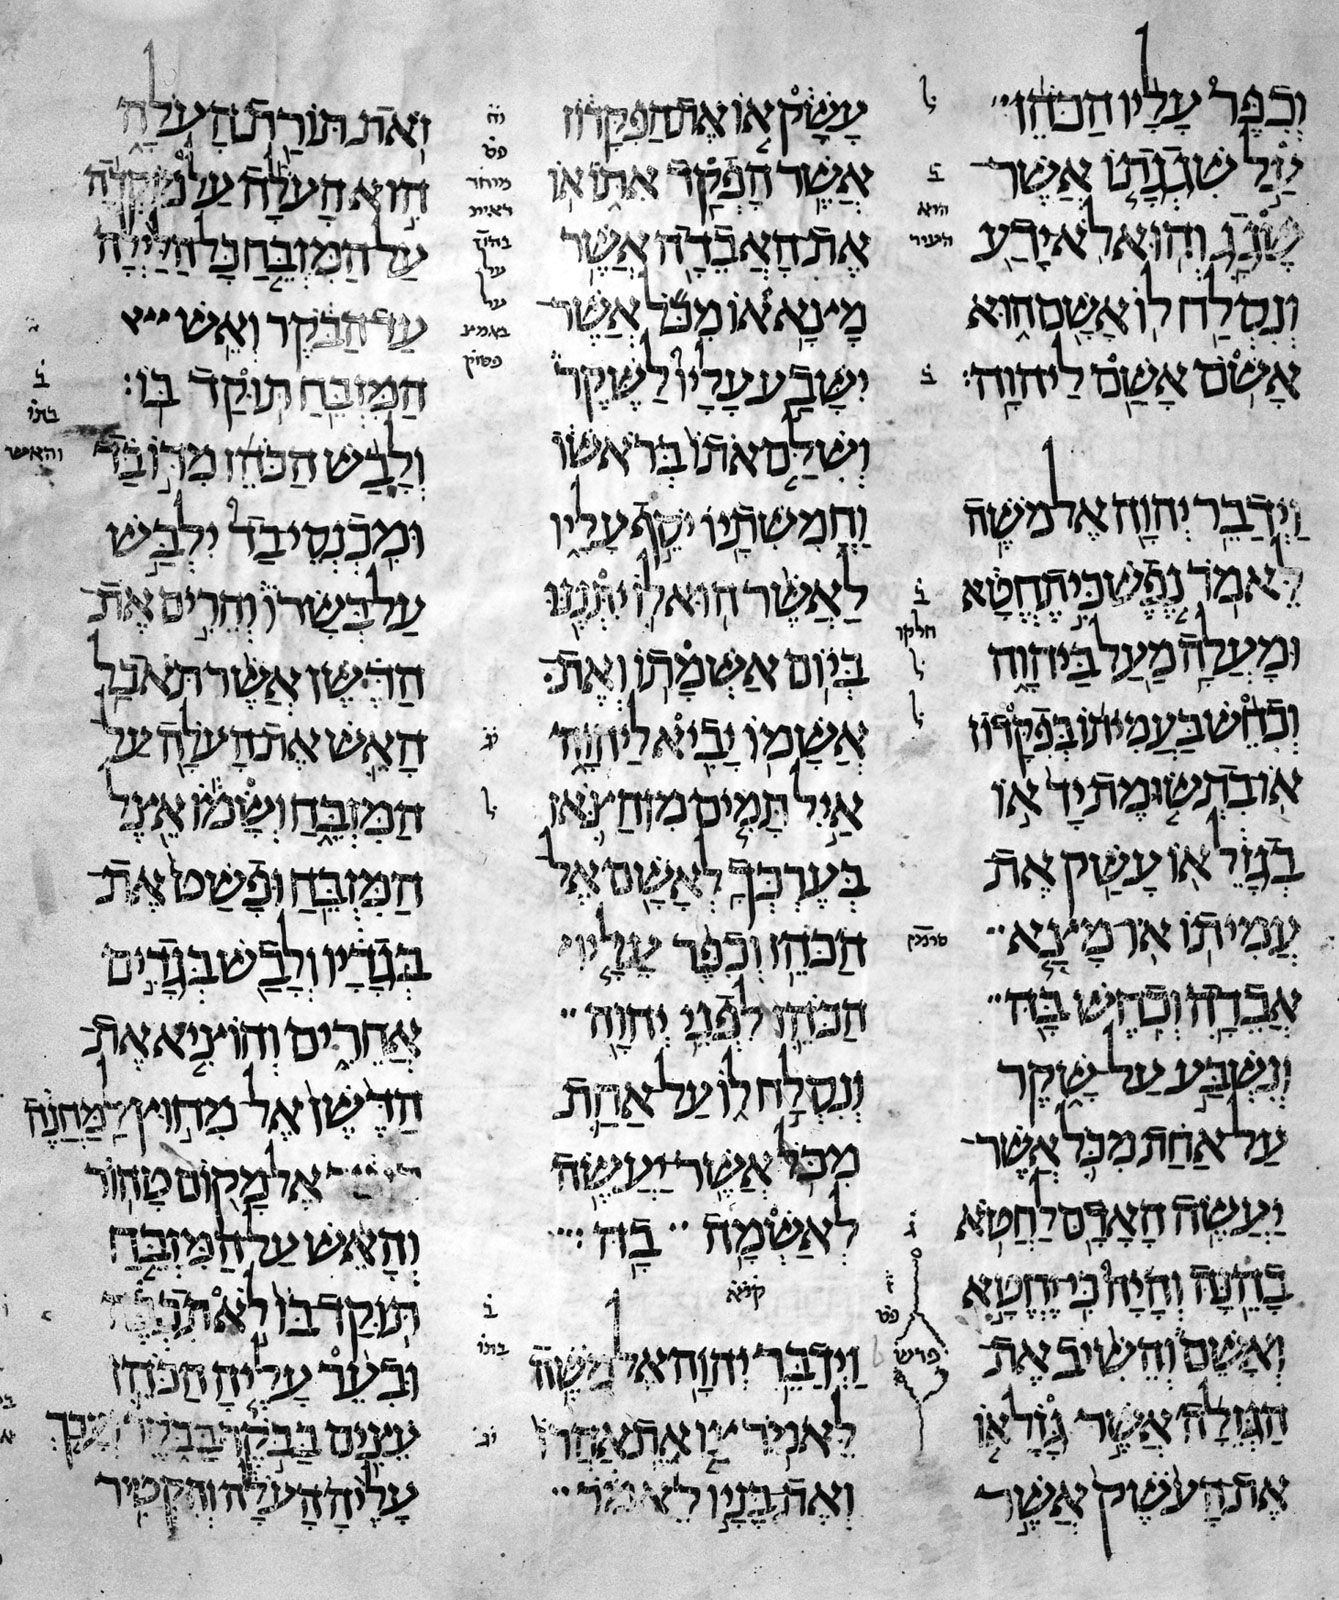 וְכִפֶּר עָלָיו הַכֹּהֵן
עַל שִׁגְגָתוֹ אֲשֶׁר
שָׁגָג וְהוּא לֹא יָדַע
וְנִסְלַח לוֹ אָשָׁם הוּא
אָשֹׁם אָשַׁם לַיהוָה׃
וַיְדַבֵּר יְהוָה אֶל מֹשֶׁה
לֵּאמֹר נֶפֶשׁ כִּי תֶחֱטָא
וּמָעֲלָה מַעַל בַּיהוָה
וְכִחֵשׁ בַּעֲמִיתוֹ בְּפִקָּדוֹן
אוֹ בִתְשׂוּמֶת יָד אוֹ
בְגָזֵל אוֹ עָשַׁק אֶת
עֲמִיתוֹ אוֹ מָצָא
אֲבֵדָה וְכִחֶשׁ בָּהּ
וְנִשְׁבַּע עַל שָׁקֶר
עַל אַחַת מִכֹּל אֲשֶׁר
יַעֲשֶׂה הָאָדָם לַחֲטֹא
בָהֵנָּה וְהָיָה כִּי יֶחֱטָא
וְאָשֵׁם וְהֵשִׁיב אֶת
הַגְּזֵלָה אֲשֶׁר גָּזָל אוֹ
אֶת הָעֹשֶׁק אֲשֶׁר
ל
ב
הוא
העיר
ב
ב
חלקו
ל
ל
סימן
ג
פס
פרש
עָשָׁק אוֹ אֶת הַפִּקָּדוֹן
אֲשֶׁר הָפְקַד אִתּוֹ אוֹ
אֶת הָאֲבֵדָה אֲשֶׁר
מָצָא אוֹ מִכֹּל אֲשֶׁר
יִשָּׁבַע עָלָיו לַשֶּׁקֶר
וְשִׁלַּם אֹתוֹ בְּרֹאשׁוֹ
וַחֲמִשִׁתָיו יֹסֵף עָלָיו
לַאֲשֶׁר הוּא לוֹ יִתְּנֶנּוּ
בְּיוֹם אַשְׁמָתוֹ וְאֶת
אֲשָׁמוֹ יָבִיא לַיהוָה
אַיִל תָּמִים מִן הַצֹּאן
בְּעֶרְכְּךָ לְאָשָׁם אֶל
הַכֹּהֵן וְכִפֶּר עָלָיו
הַכֹּהֵן לִפְנֵי יְהוָה
וְנִסְלַח לוֹ עַל אַחַת
מִכֹּל אֲשֶׁר יַעֲשֶׂה
לְאַשְׁמָה בָהּ׃
וַיְדַבֵּר יְהוָה אֶל מֹשֶׁה
לֵּאמֹר צַו אֶת אַהֲרֹן
וְאֶת בָּנָיו לֵאמֹר
פס
מיוחד
דאית
בהון
על
על
פסוק
ל
ב
בתו
זֹאת תּוֹרַת הָעֹלָה
הִוא הָעֹלָה עַל מוֹקְדָה
עַל הַמִּזְבֵּחַ כָּל הַלַּיְלָה
עַד הַבֹּקֶר וְאֵשׁ
הַמִּזְבֵּחַ תּוּקַד בּוֹ׃
וְלָבַשׁ הַכֹּהֵן מִדּוֹ בַד
וּמִכְנְסֵי בַד יִלְבַּשׁ
עַל בְּשָׂרוֹ וְהֵרִים אֶת
הַדֶּשֶׁן אֲשֶׁר תֹּאכַל
הָאֵשׁ אֶת הָעֹלָה עַל
הַמִּזְבֵּחַ וְשָׂמוֹ אֵצֶל
הַמִּזְבֵּחַ וּפָשַׁט אֶת
בְּגָדָיו וְלָבַשׁ בְּגָדִים
אֲחֵרִים וְהוֹצִיא אֶת
הַדֶּשֶׁן אֶל מִחוּץ לַמַּחֲנֶה
אֶל מָקוֹם טָהוֹר
וְהָאֵשׁ עַל הַמִּזְבֵּחַ
תּוּקַד בּוֹ לֹא תִכְבֶּה
וּבִעֵר עָלֶיהָ הַכֹּהֵן
עֵצִים בַּבֹּקֶר בַּבֹּקֶר וְעָרַךְ
עָלֶיהָ הָעֹלָה וְהִקְטִיר
ב
בתו
והאש